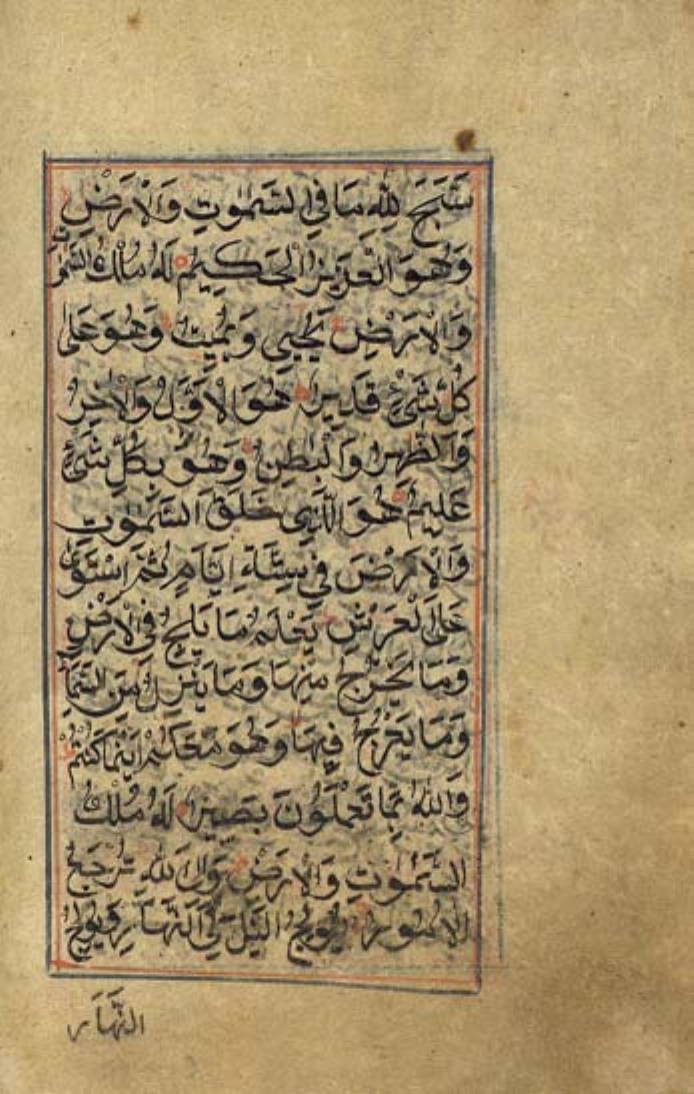 سَبَّحَ لِلّٰهِ مَا فِي السَّمٰوٰتِ وَالْاَرْضِ
وَهُوَ الْعَزِيْزُ الْحَكِيْمُ لَهُ مُلْكُ السَّمٰوٰتِ
وَالْاَرْضِ يُحْيٖى وَيُمِيْتُ وَهُوَ عَلٰى
كُلِّ شَىْءٍ قَدِيْرٌ هُوَ الْاَوَّلُ وَالْاٰخِرُ
وَالظّٰهِرُ وَالْبٰطِنُ وَهُوَ بِكُلِّ شَىْءٍ
عَلِيْمٌ هُوَ الَّذِى خَلَقَ السَّمٰوٰتِ
وَالْاَرْضَ فِى سِتَّةِ اَيَّامٍ ثُمَّ اسْتَوٰى
عَلَى الْعَرْشِ يَعْلَمُ مَا يَلِجُ فِى الْاَرْضِ
وَمَا يَخْرُجُ مِنْهَا وَمَا يَنْزِلُ مِنَ السَّمَاءِ
وَمَا يَعْرُجُ فِيْهَا وَهُوَ مَعَكُمْ اَيْنَمَا كُنْتُمْ
وَاللّٰهُ بِمَا تَعْمَلُوْنَ بَصِيْرٌ لَهُ مُلْكُ
السَّمٰوٰتِ وَالْاَرْضِ وَاِلَى اللّٰهِ تُرْجَعُ
الْاُمُوْرُ يُوْلِجُ الَّيْلَ فِى النَّهَارِ وَيُوْلِجُ
النَّهَارَ